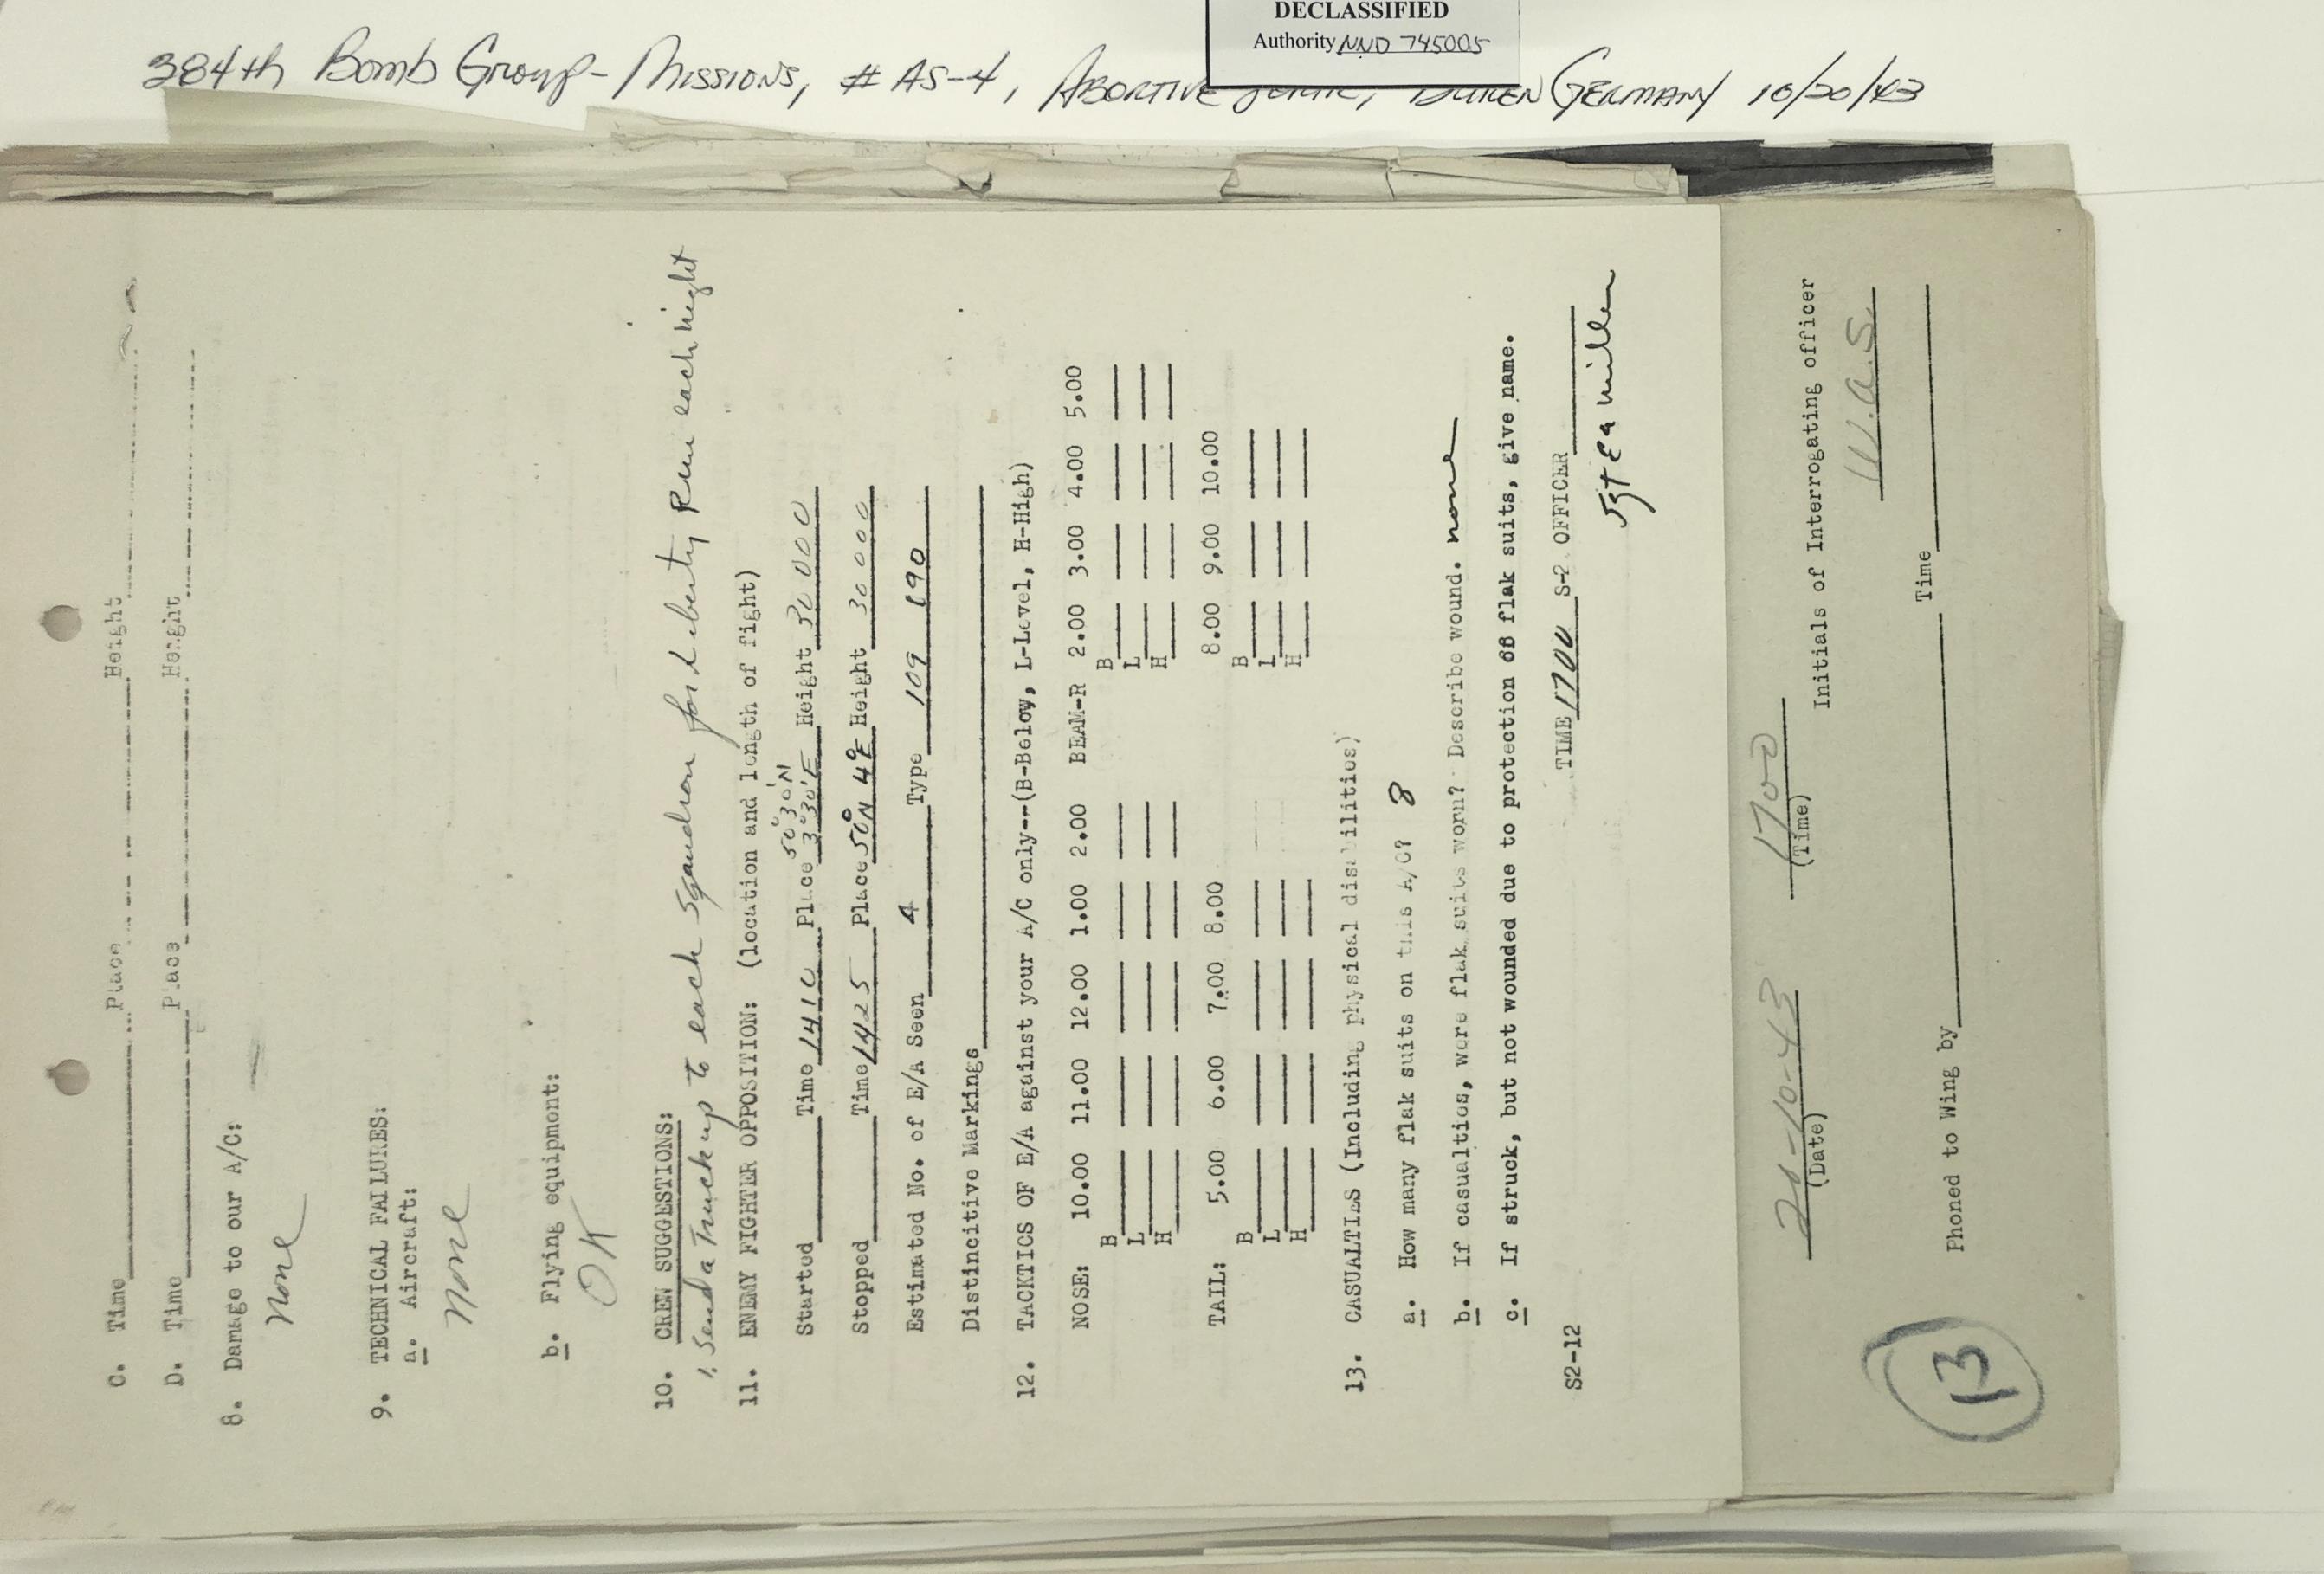 DECLASSIFIED
Authority NND 745005
384th Bomb Group - Missions, # AS-4, Abortive DUREN GERMANY 10/20/43
C. Time Place Height
D. Time Place Henght
8. Damage to our A/C:
None
9. TECHNICAL FAILURES:
a. Aircraft:
None
b. Flying equipmont:
OK
10. CREW SUGGESTIONS:
1. Send a Truck up to each Squadron for Liberty Run each night
11. ENEMY FIGHTER OPPOSITION: (location and length of fight)
50°30'N
Started Time 1410 Place 3°30'E Height 30000
Stopped Time 1425 Place 50°N 4°E Height 30000
Estimated No. of E/A Seen 4 Type 109 190
Distincitive Markings
12. TACKTICS OF E/A against your A/C only--(B-Below, L-Level, H-High)
NOSE: 10.00 11.00 12.00 1.00 2.00 BEAM-R 2.00 3.00 4.00 5.00
B B
L L
H H
TAIL: 5.00 6.00 7.00 8.00 8.00 9.00 10.00
B B
L L
H H
13. CASUALTIES (Including physical disabilities)
a. How many flak suits on this A/C? 8
b. If casualtios, were flak suits worn? Describe wound. none
c. If struck, but not wounded due to protection of flak suits, give name.
TIME 1700 S-2 OFFICER
Sgt E a miller
S2-12
20-10-43 1700
(Date) (Time) Initials of Interrogating officer
W.A.S.
Phoned to Wing by Time
13